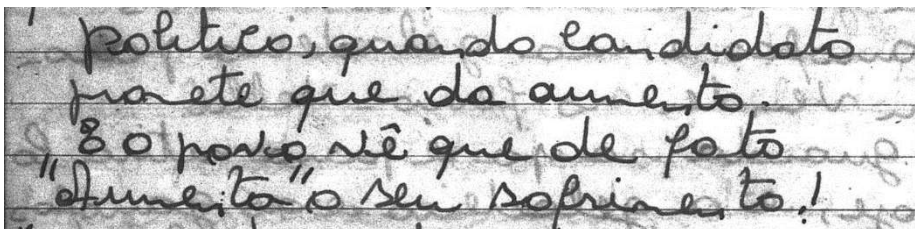 politico, quando candidato
promete que da aumento.
E o povo vê que de fato
"Aumenta" o seu sofrimento!